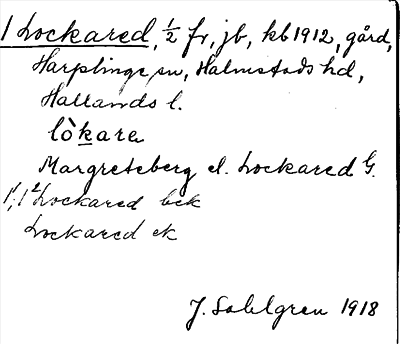 1 Lockared, ½ fr, jb, kb 1912, gård,
Harplinge sn, Halmstads hd,
Hallands l.
lò̀kara
Margreteberg el. Lockared G.
1¹, 1² Lockared bek
Lockared ek
J. Sahlgren 1918